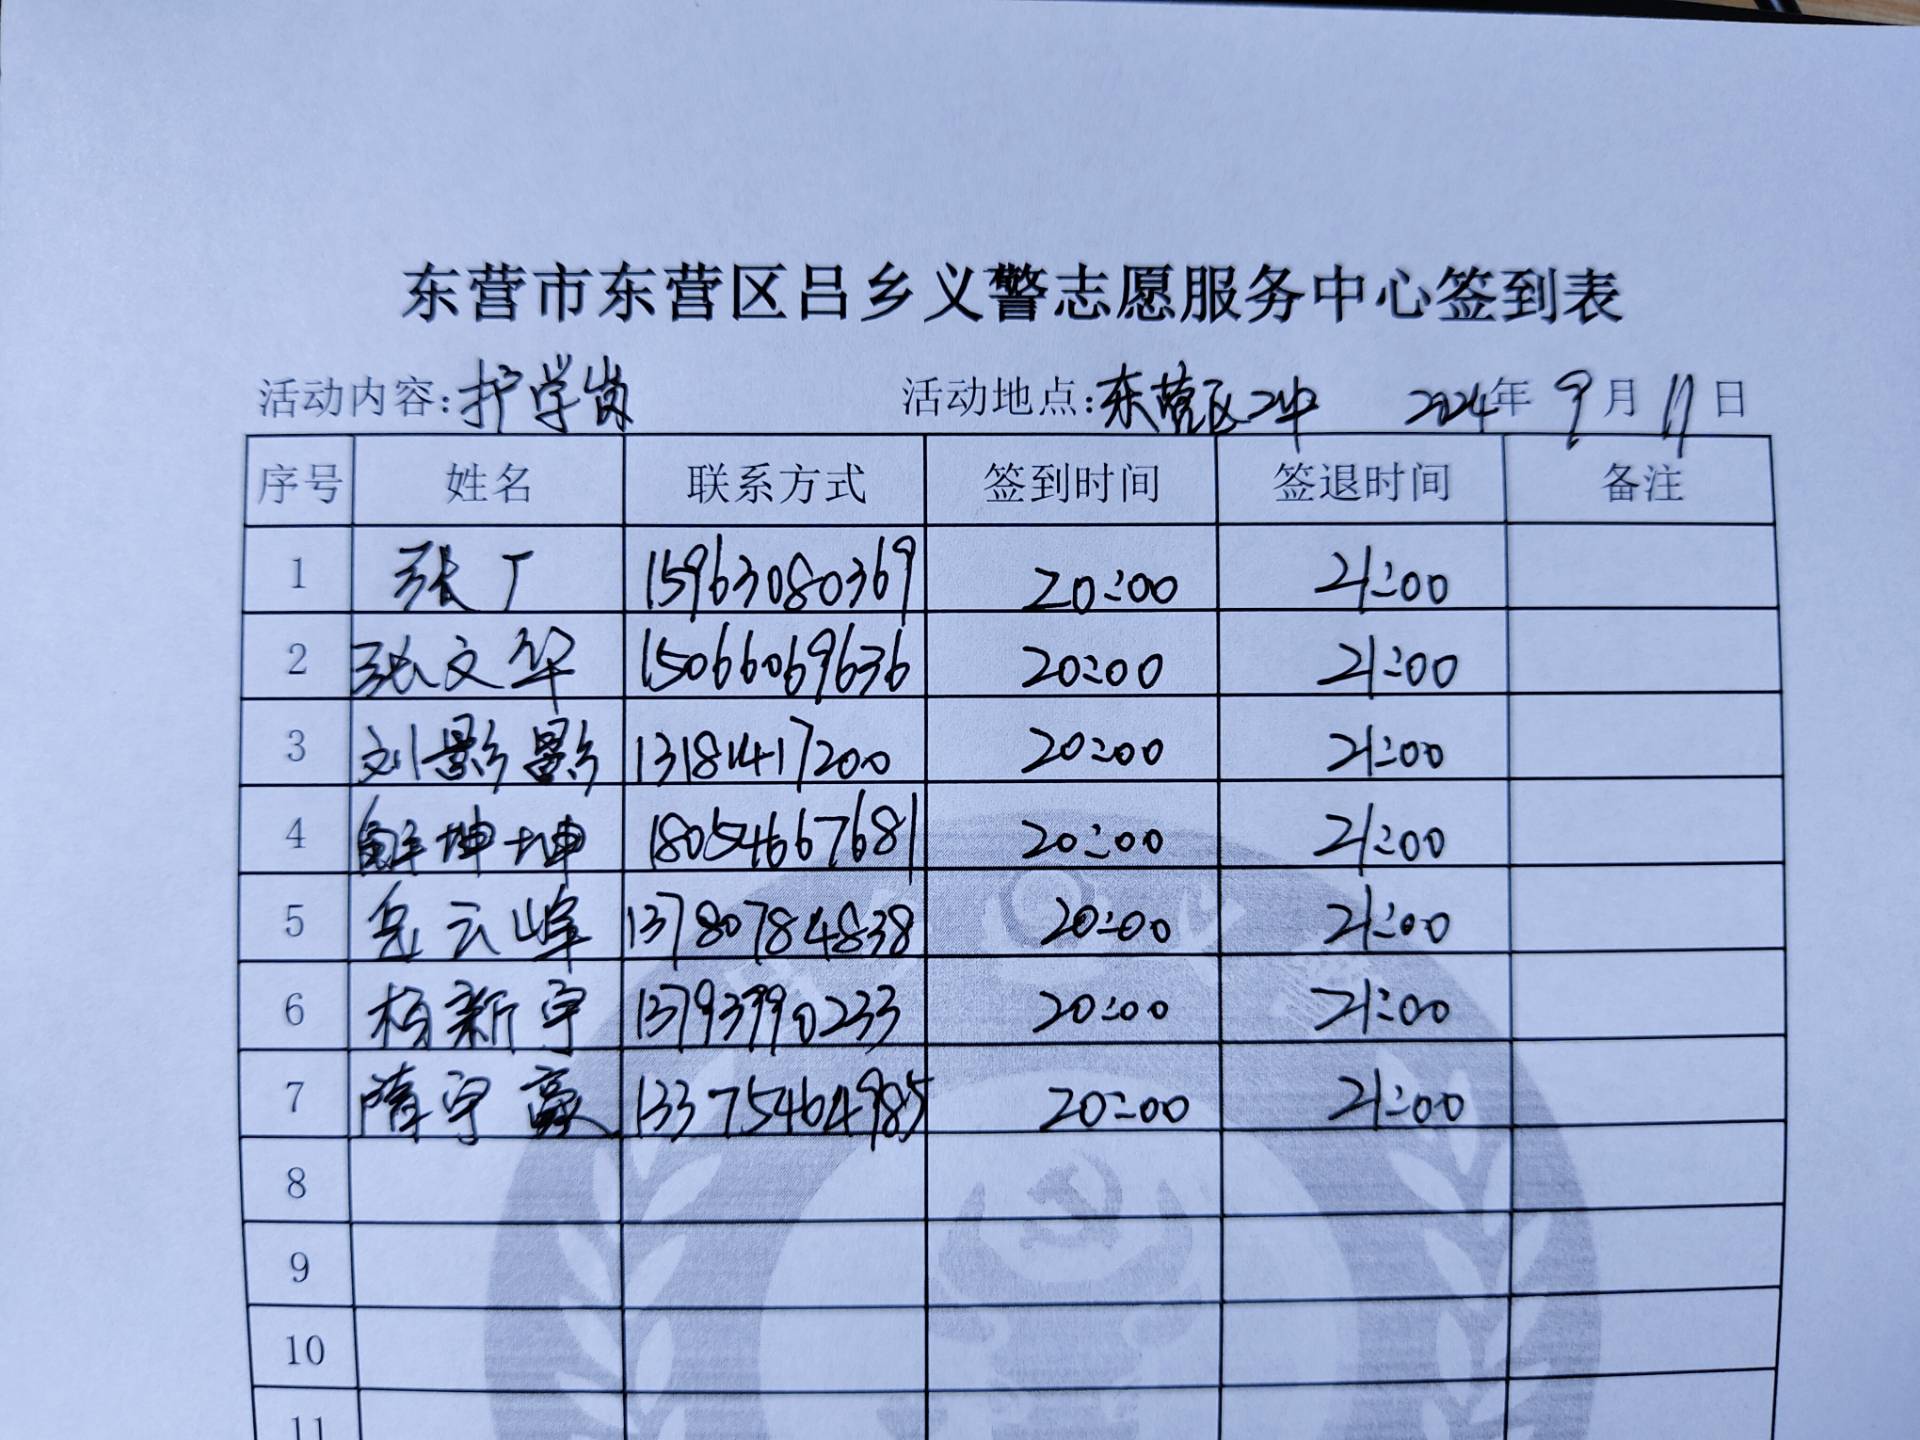 东营市东营区吕乡义警志愿服务中心签到表
活动内容:护学岗 活动地点:东营区二中 2024年 9月 11日
序号 姓名 联系方式 签到时间 签退时间 备注
1 张广 15963080369 20:00 21:00
2 张文华 15066069636 20:00 21:00
3 刘影影 13181417200 20:00 21:00
4 解坤坤 18054667681 20:00 21:00
5 岳云峰 13780784838 20:00 21:00
6 杨新宇 13793990233 20:00 21:00
7 隋宇豪 13375464985 20:00 21:00
8
9
10
11